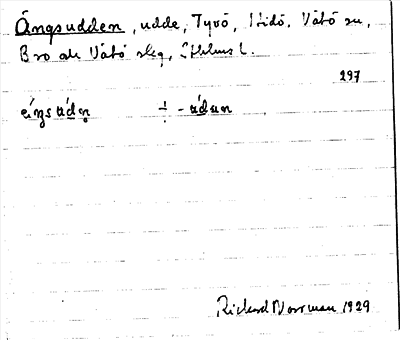 Ängsudden, udde, Tyvö, Hidö, Vätö sn,
Bro och Vätö skg, Sthlms l.
297
éi̯ŋsúdn̥ ÷ -údan
Richard Norrman 1929